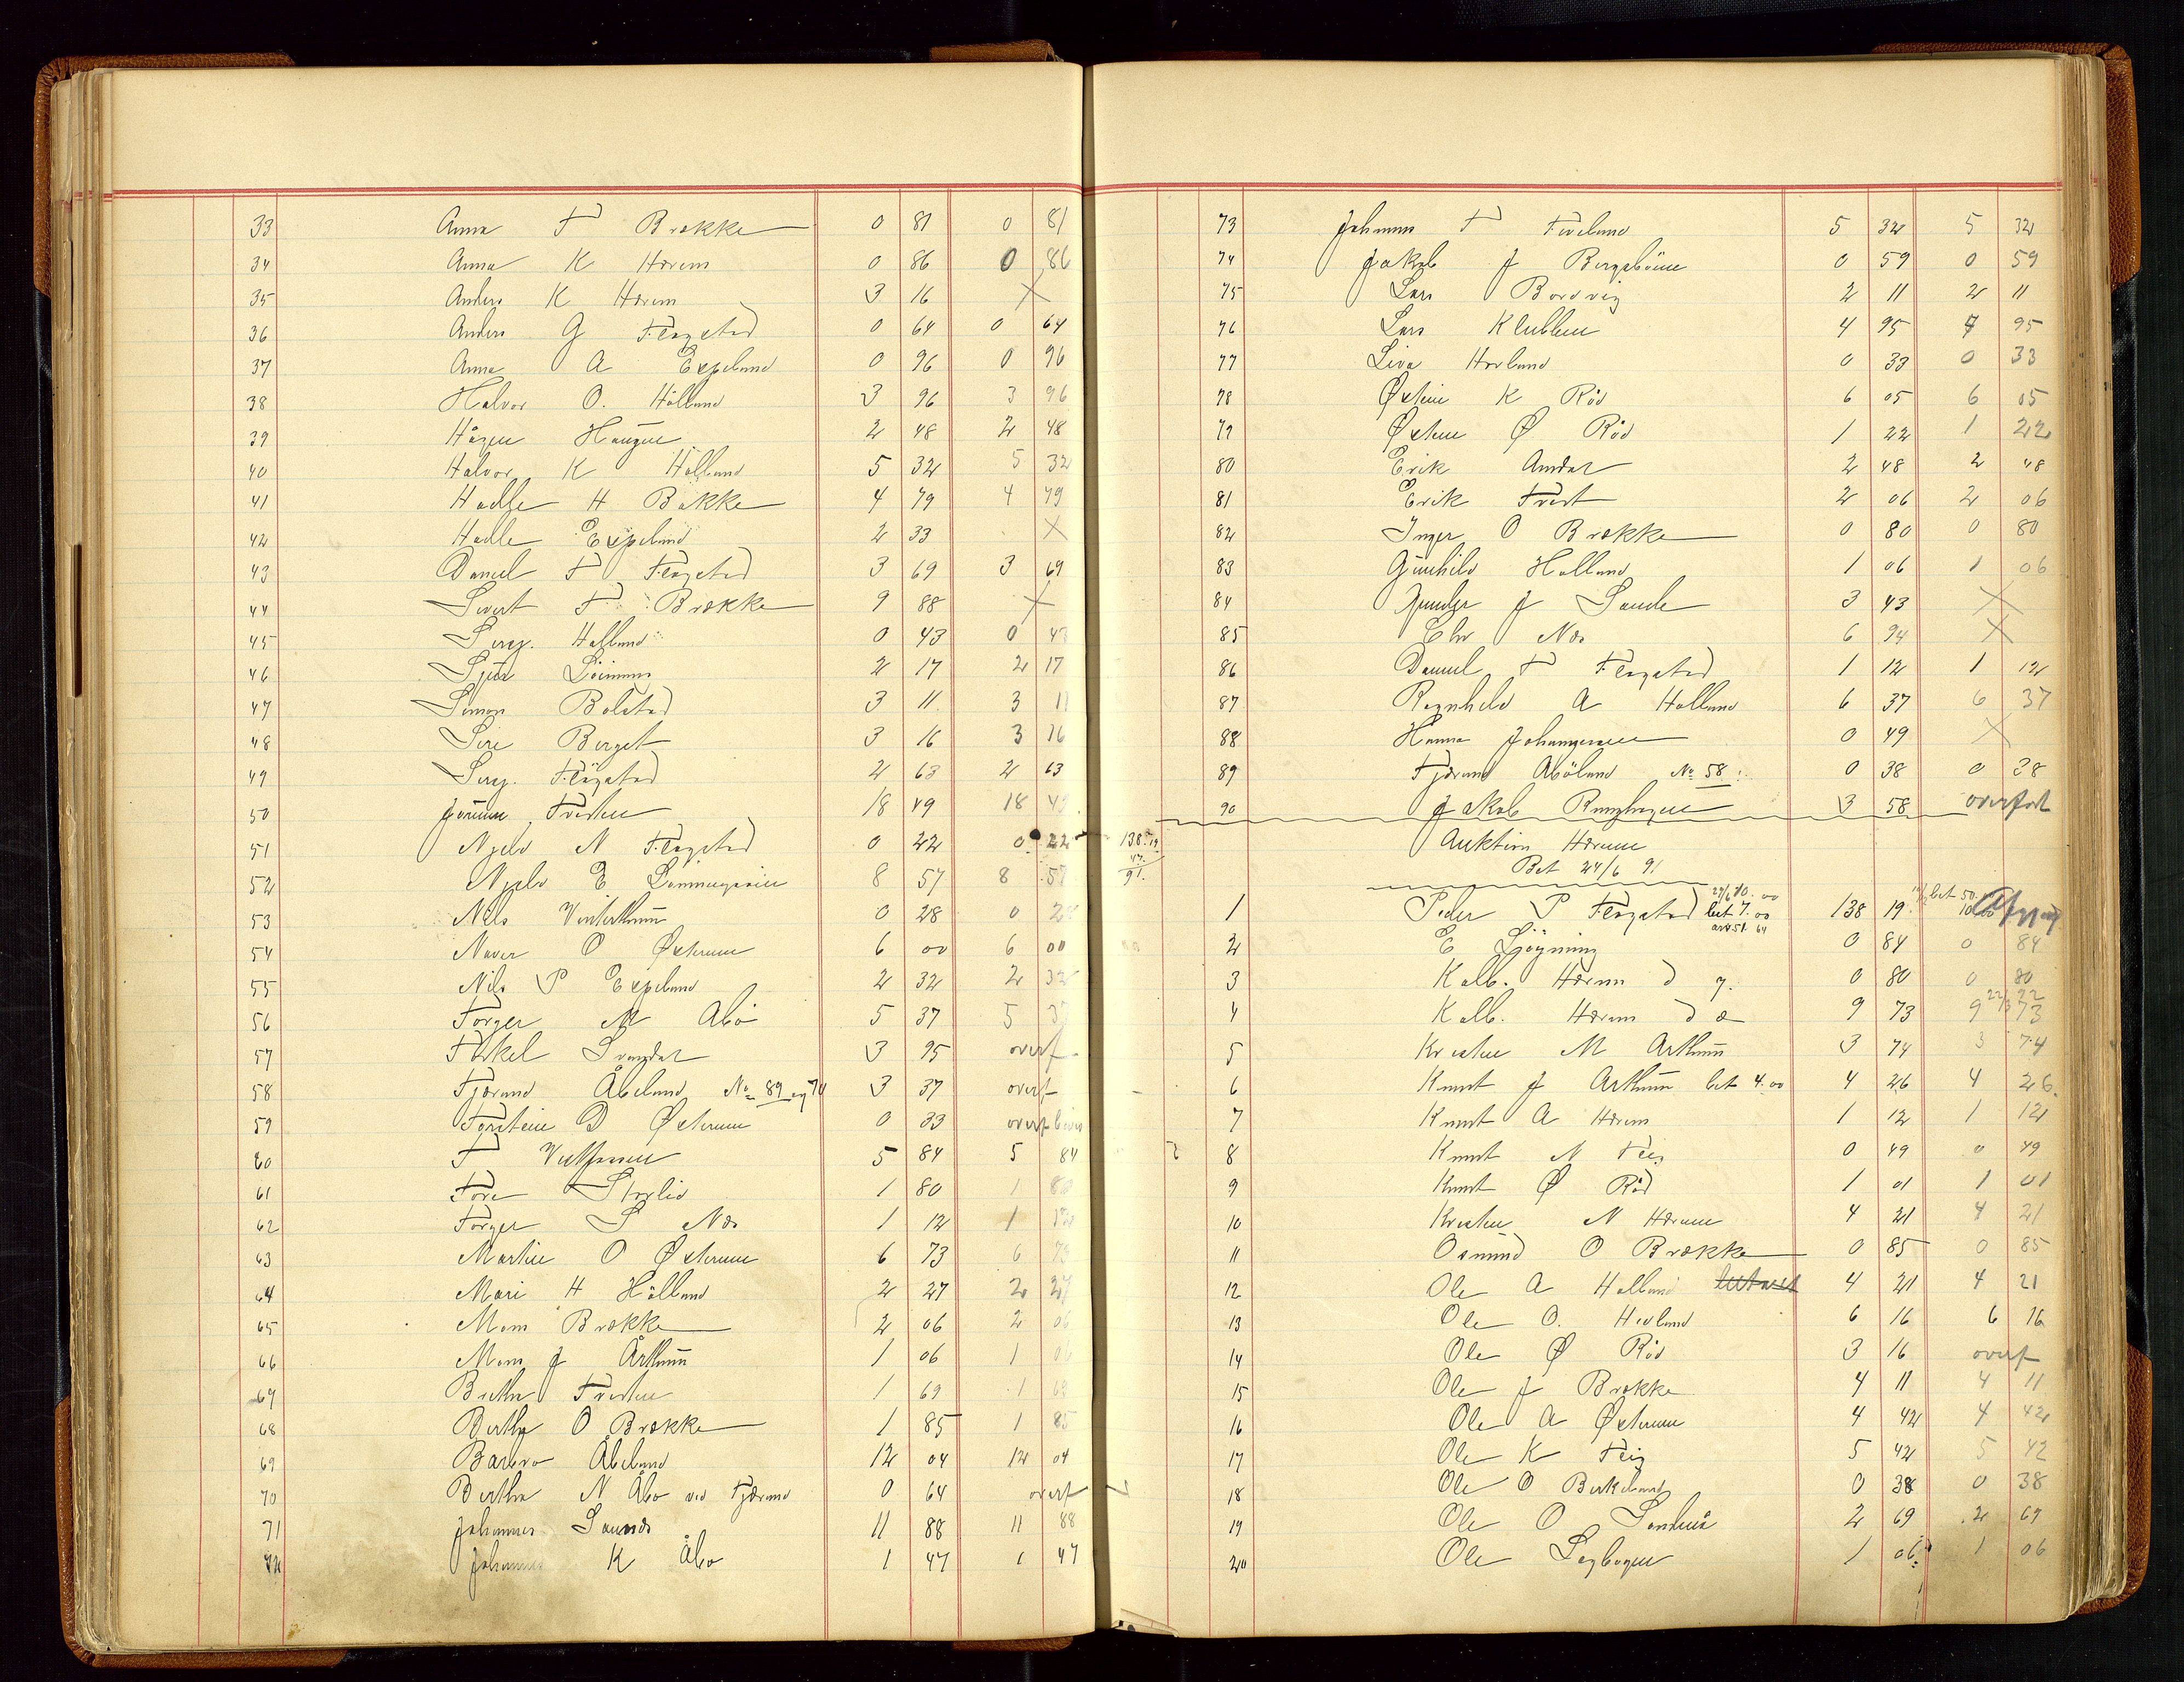 33 Anna T Brække 0 81 0 81
34 Anna K Hærem 0 86 0 86
35 Anders K Hærem 3 16 X
36 Anders G Fløgstad 0 64 0 64
37 Anna A Espeland 0 96 0 96
38 Halvor O. Hålland 3 96 3 96
39 Hågen Haugen 2 48 2 48
40 Halvor K Hålland 5 32 5 32
41 Hadle H Bakke 4 79 4 79
42 Hadle Espeland 2 33 X
43 Daniel T Fløgstad 3 69 3 69
44 Sivert T Brække 9 88 X
45 Serg. Halland 0 43 0 43
46 Sjur 2 17 2 17
47 Simon Bolstad 3 11 3 11
48 Siri Berget 3 16 3 16
49 Serg. Fløgstad 2 63 2 63
50 Jørunn Træen 18 49 18 49
51 Njeld N Fløgstad 0 22 0 22
52 Njeld E 8 57 8 57
53 Nils Vinterthun 0 28 0 28
54 O Østerem 6 00 6 00
55 Nils P Espeland 2 32 2 32
56 Torger M Åbø 5 37 5 37
57 Torkel 3 95 overf
58 Tjerand Åbeland No 89 og 70 3 37 overf
59 Torstein D Østerem 0 33 overf
60 T 5 84 5 84
61 Tore Storlid 1 80 1 80
62 Torger S Næs 1 12 1 12
63 Martin O Østerem 6 73 6 73
64 Mari H Hålland 2 27 2 27
65 Brække 2 06 2 06
66 J Arthun 1 06 1 06
67 Bertha 1 69 1 69
68 Bertha O Brække 1 85 1 85
69 Barbro Åbeland 12 04 12 04
70 Bertha N Åbø ved Tjerand 0 64 overf
71 Johannes Saunde 11 88 11 88
72 Johannes K Åbø 1 47 1 47
73 Johannes T 5 32 5 32
74 Jakob J 0 59 0 59
75 Lars Bordvig 2 11 2 11
76 Lars Klubben 4 95 4 95
77 Liva Hovland 0 33 0 33
78 Østen K Rød 6 05 6 05
79 Østen Ø Rød 1 22 1 22
80 Erik Amdal 2 48 2 48
81 Erik 2 06 2 06
82 Inger O Brække 0 80 0 80
83 Gunhild Halland 1 06 1 06
84 J Sande 3 43 X
85 Chr Næs 6 94 X
86 Daniel T Fløgstad 1 12 1 12
87 Ragnhild A Halland 6 37 6 37
88 Hanna Johannesen 0 49 X
89 Tjerand Åbøland No 58 0 38 0 38
90 Jakob 3 58 overfort
138.19
47.
91.
Auktion Hærem
Bet 24/6 91
1 Peder P Fløgstad bet 7.00 138 19 bet 50
2 E 0 84 0 84
3 Kalb. Hærem d y. 0 80 0 80
4 Kalb. Hærem d æ 9 73 9 73
5 Kristen M Arthun 3 74 3 74
6 Knut J Arthun bet 4.00 4 26 4 26
7 Knut A Hærem 1 12 1 12
8 Knut N Teig 0 49 0 49
9 Knut Ø Rød 1 01 1 01
10 Kristen N Hærem 4 21 4 21
11 Osmund O Brække 0 85 0 85
12 Ole A Halland 4 21 4 21
13 Ole O. Hovland 6 16 6 16
14 Ole Ø Rød 3 16 overf
15 Ole J Brække 4 11 4 11
16 Ole A Østerem 4 42 4 42
17 Ole K Teig 5 42 5 42
18 Ole O Birkeland 0 38 0 38
19 Ole O Sandnes 2 69 2 69
20 Ole 1 06 1 06